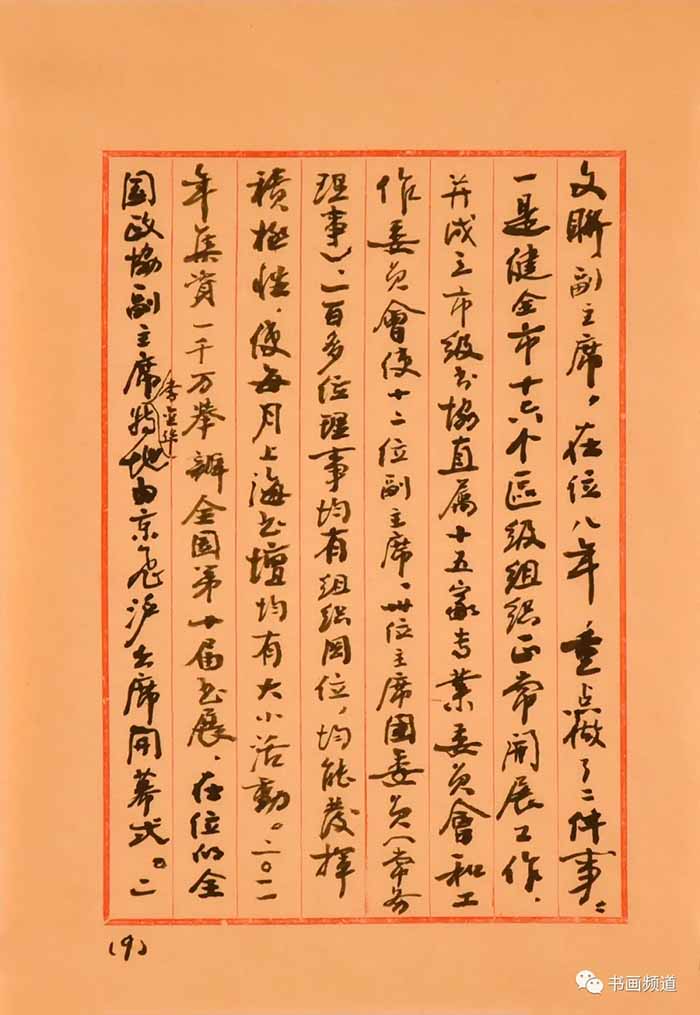 文聯副主席，在位八年重点做了二件事：
一是健全市十六个區级组织正常開展工作．
并成立市级书協直属十五家专業委员會和工
作委员會使十二位副主席、卅位主席團委员（常务
理事）、二百多位理事均有组织岗位，均能發挥
積極性．使每月上海书壇均有大小活動。二〇一
年集資一千万举辦全国第十届书展．在位的全
国政協副主席特地由京飛沪出席開幕式。二
(9)
书画频道